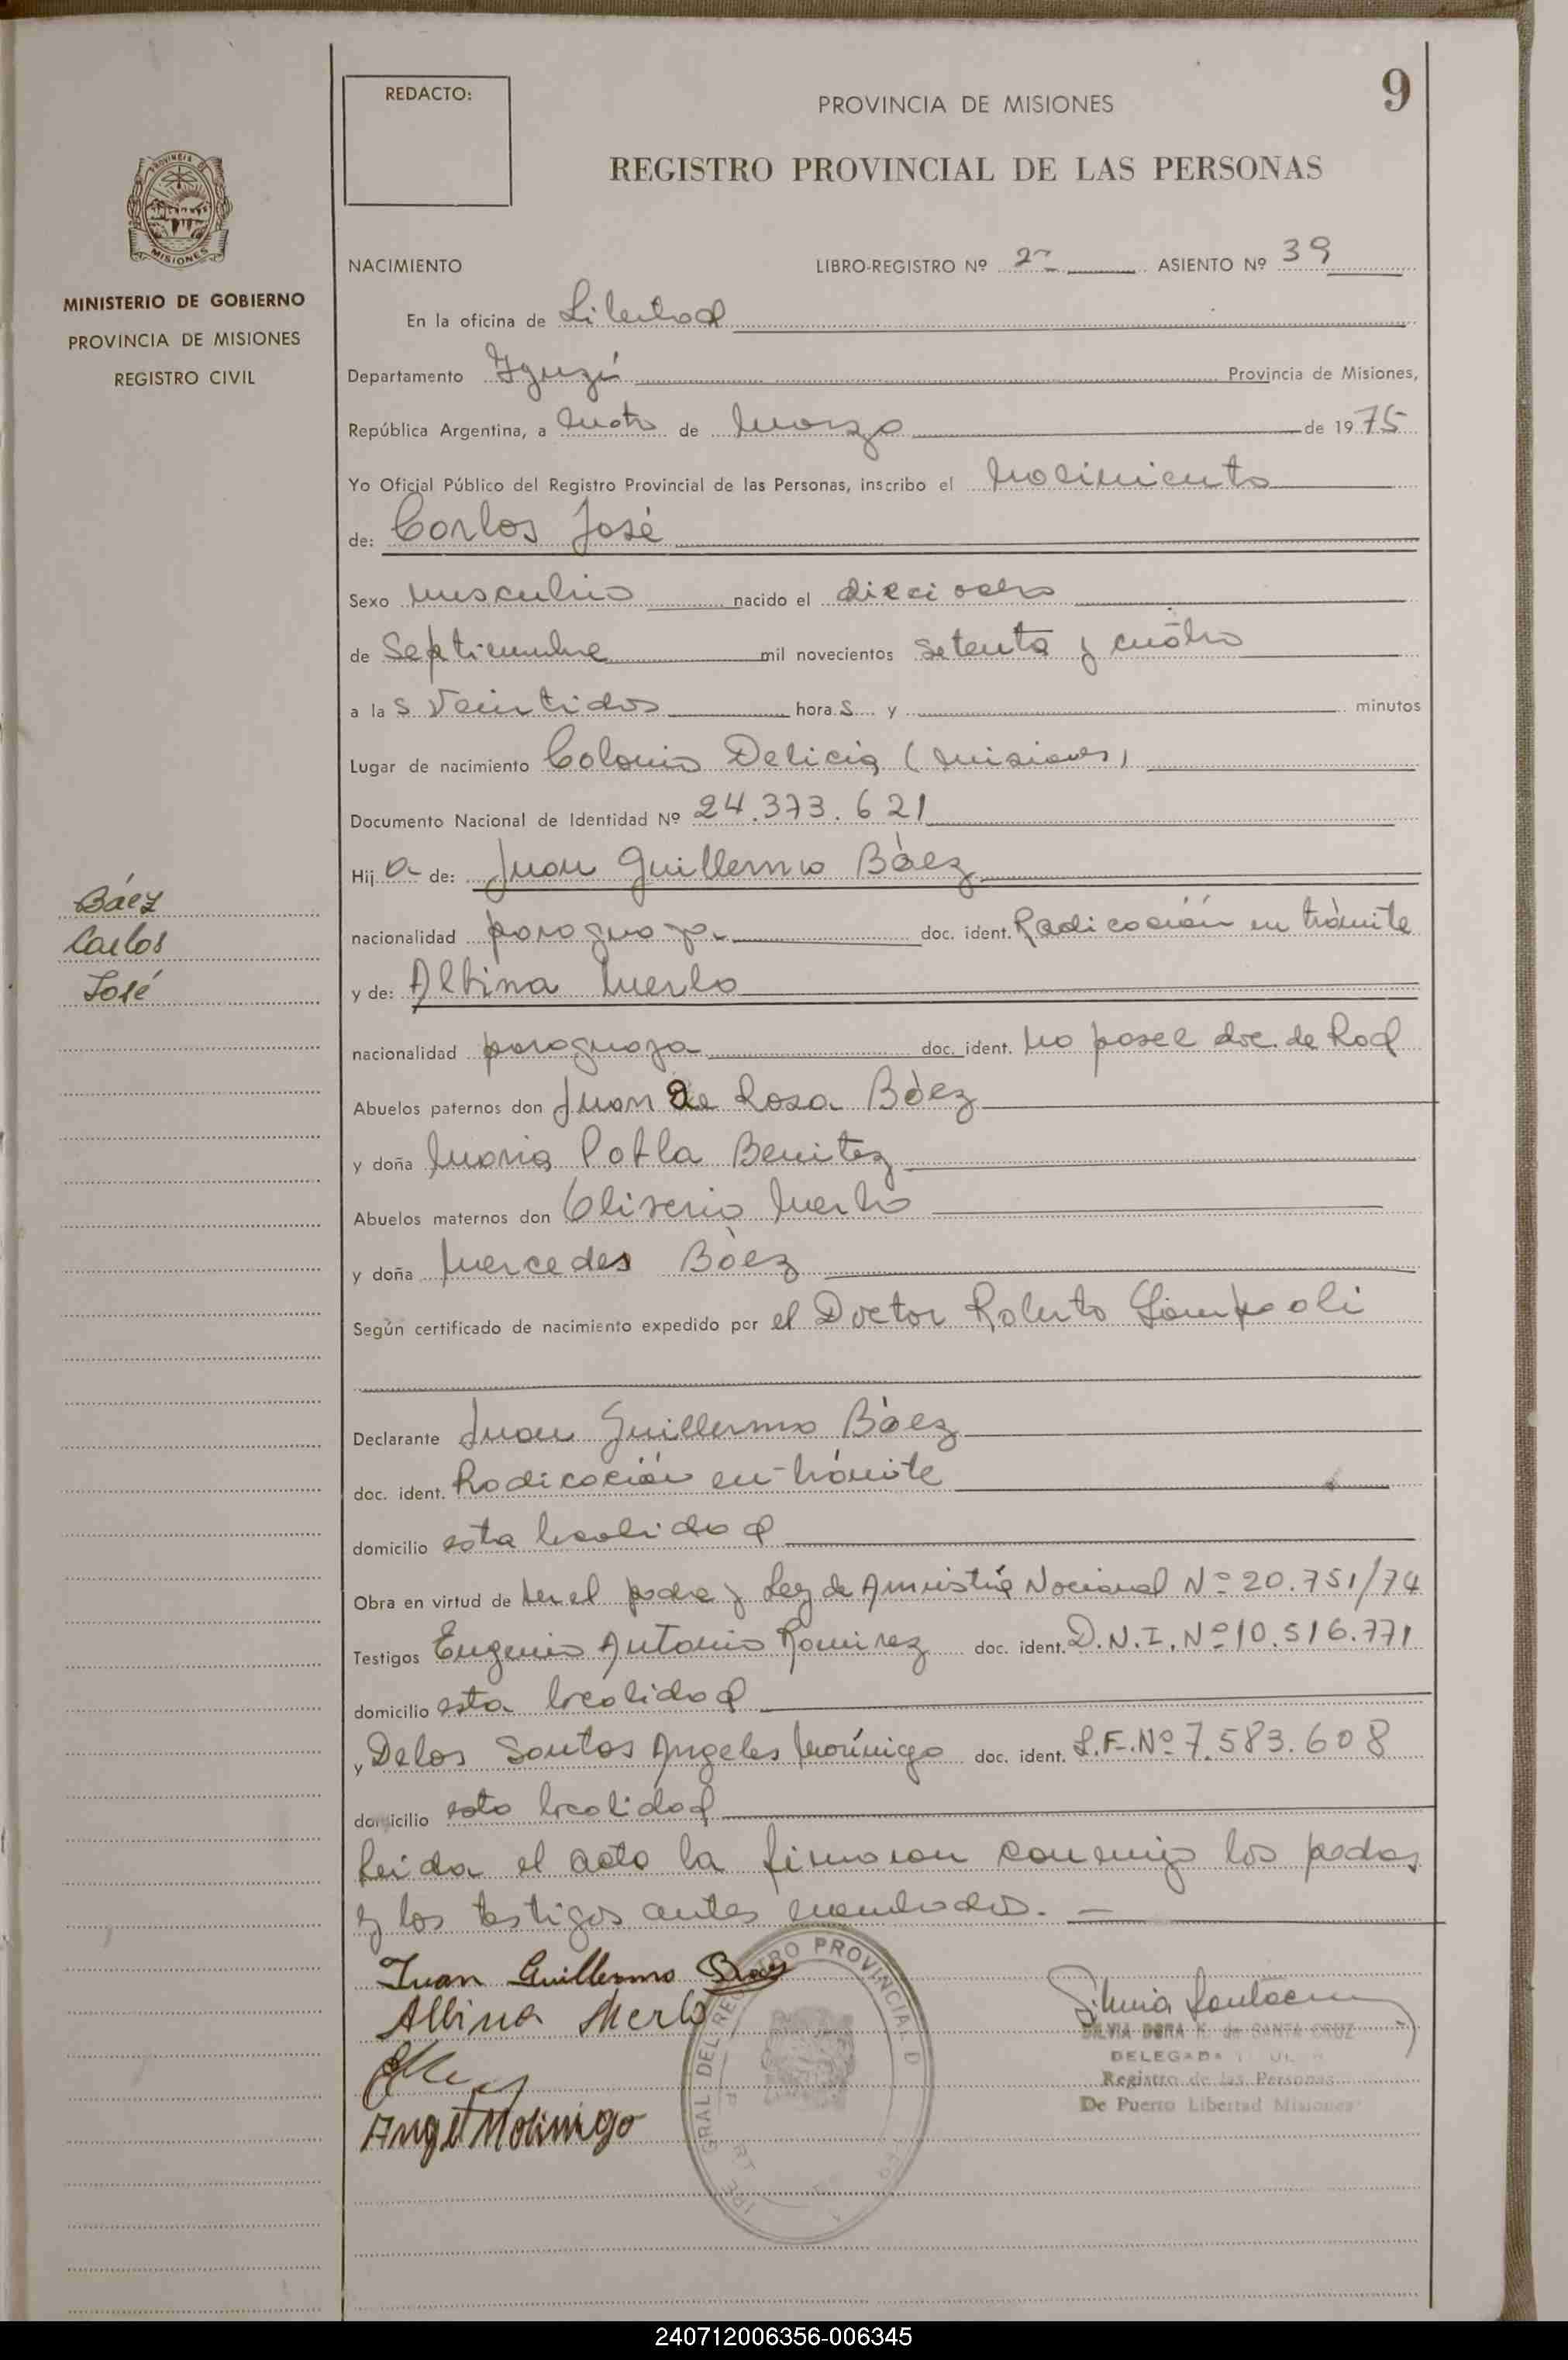 REDACTO:
PROVINCIA DE MISIONES
9
REGISTRO PROVINCIAL DE LAS PERSONAS
PROVINCIA DE
MISIONES
MINISTERIO DE GOBIERNO
PROVINCIA DE MISIONES
REGISTRO CIVIL
NACIMIENTO LIBRO-REGISTRO Nº 2º ASIENTO Nº 39
En la oficina de Libertad
Departamento Iguazú Provincia de Misiones,
República Argentina, a cuatro de Marzo de 1975
Yo Oficial Público del Registro Provincial de las Personas, inscribo el Nacimiento
de: Carlos José
Sexo masculino nacido el dieciocho
de Septiembre mil novecientos setenta y cuatro
a las veintidos horas y minutos
Lugar de nacimiento Colonia Delicia (Misiones)
Documento Nacional de Identidad Nº 24.373.621
Hijo de: Juan Guillermo Báez
nacionalidad paraguaya doc. ident. Radicación en trámite
y de: Albina Merlo
nacionalidad paraguaya doc. ident. No posee doc. de Rad
Abuelos paternos don Juan de Rosa Báez
y doña María Benitez
Abuelos maternos don Merlo
y doña Mercedes Báez
Según certificado de nacimiento expedido por el Doctor Roberto
Declarante Juan Guillermo Báez
doc. ident. Radicación en trámite
domicilio esta localidad
Obra en virtud de ser el padre y Ley de Amnistía Nacional Nº 20.751/74
Testigos Eugenio Antonio Ramirez doc. ident. D.N.I. Nº 10.516.771
domicilio esta localidad
y Delos Santos Angeles Morínigo doc. ident. L.E. Nº 7.583.608
domicilio esta localidad
Leida el acta la firmaron conmigo los padres
y los testigos antes nombrados. —
Báez
Carlos
José
Juan Guillermo Baez
Albina Merlo
Angel Molinigo
GRAL DEL REGISTRO PROVINCIAL D
SILVIA DORA K. de SANTA CRUZ
DELEGADA
Registro de las Personas
De Puerto Libertad Misiones
240712006356-006345